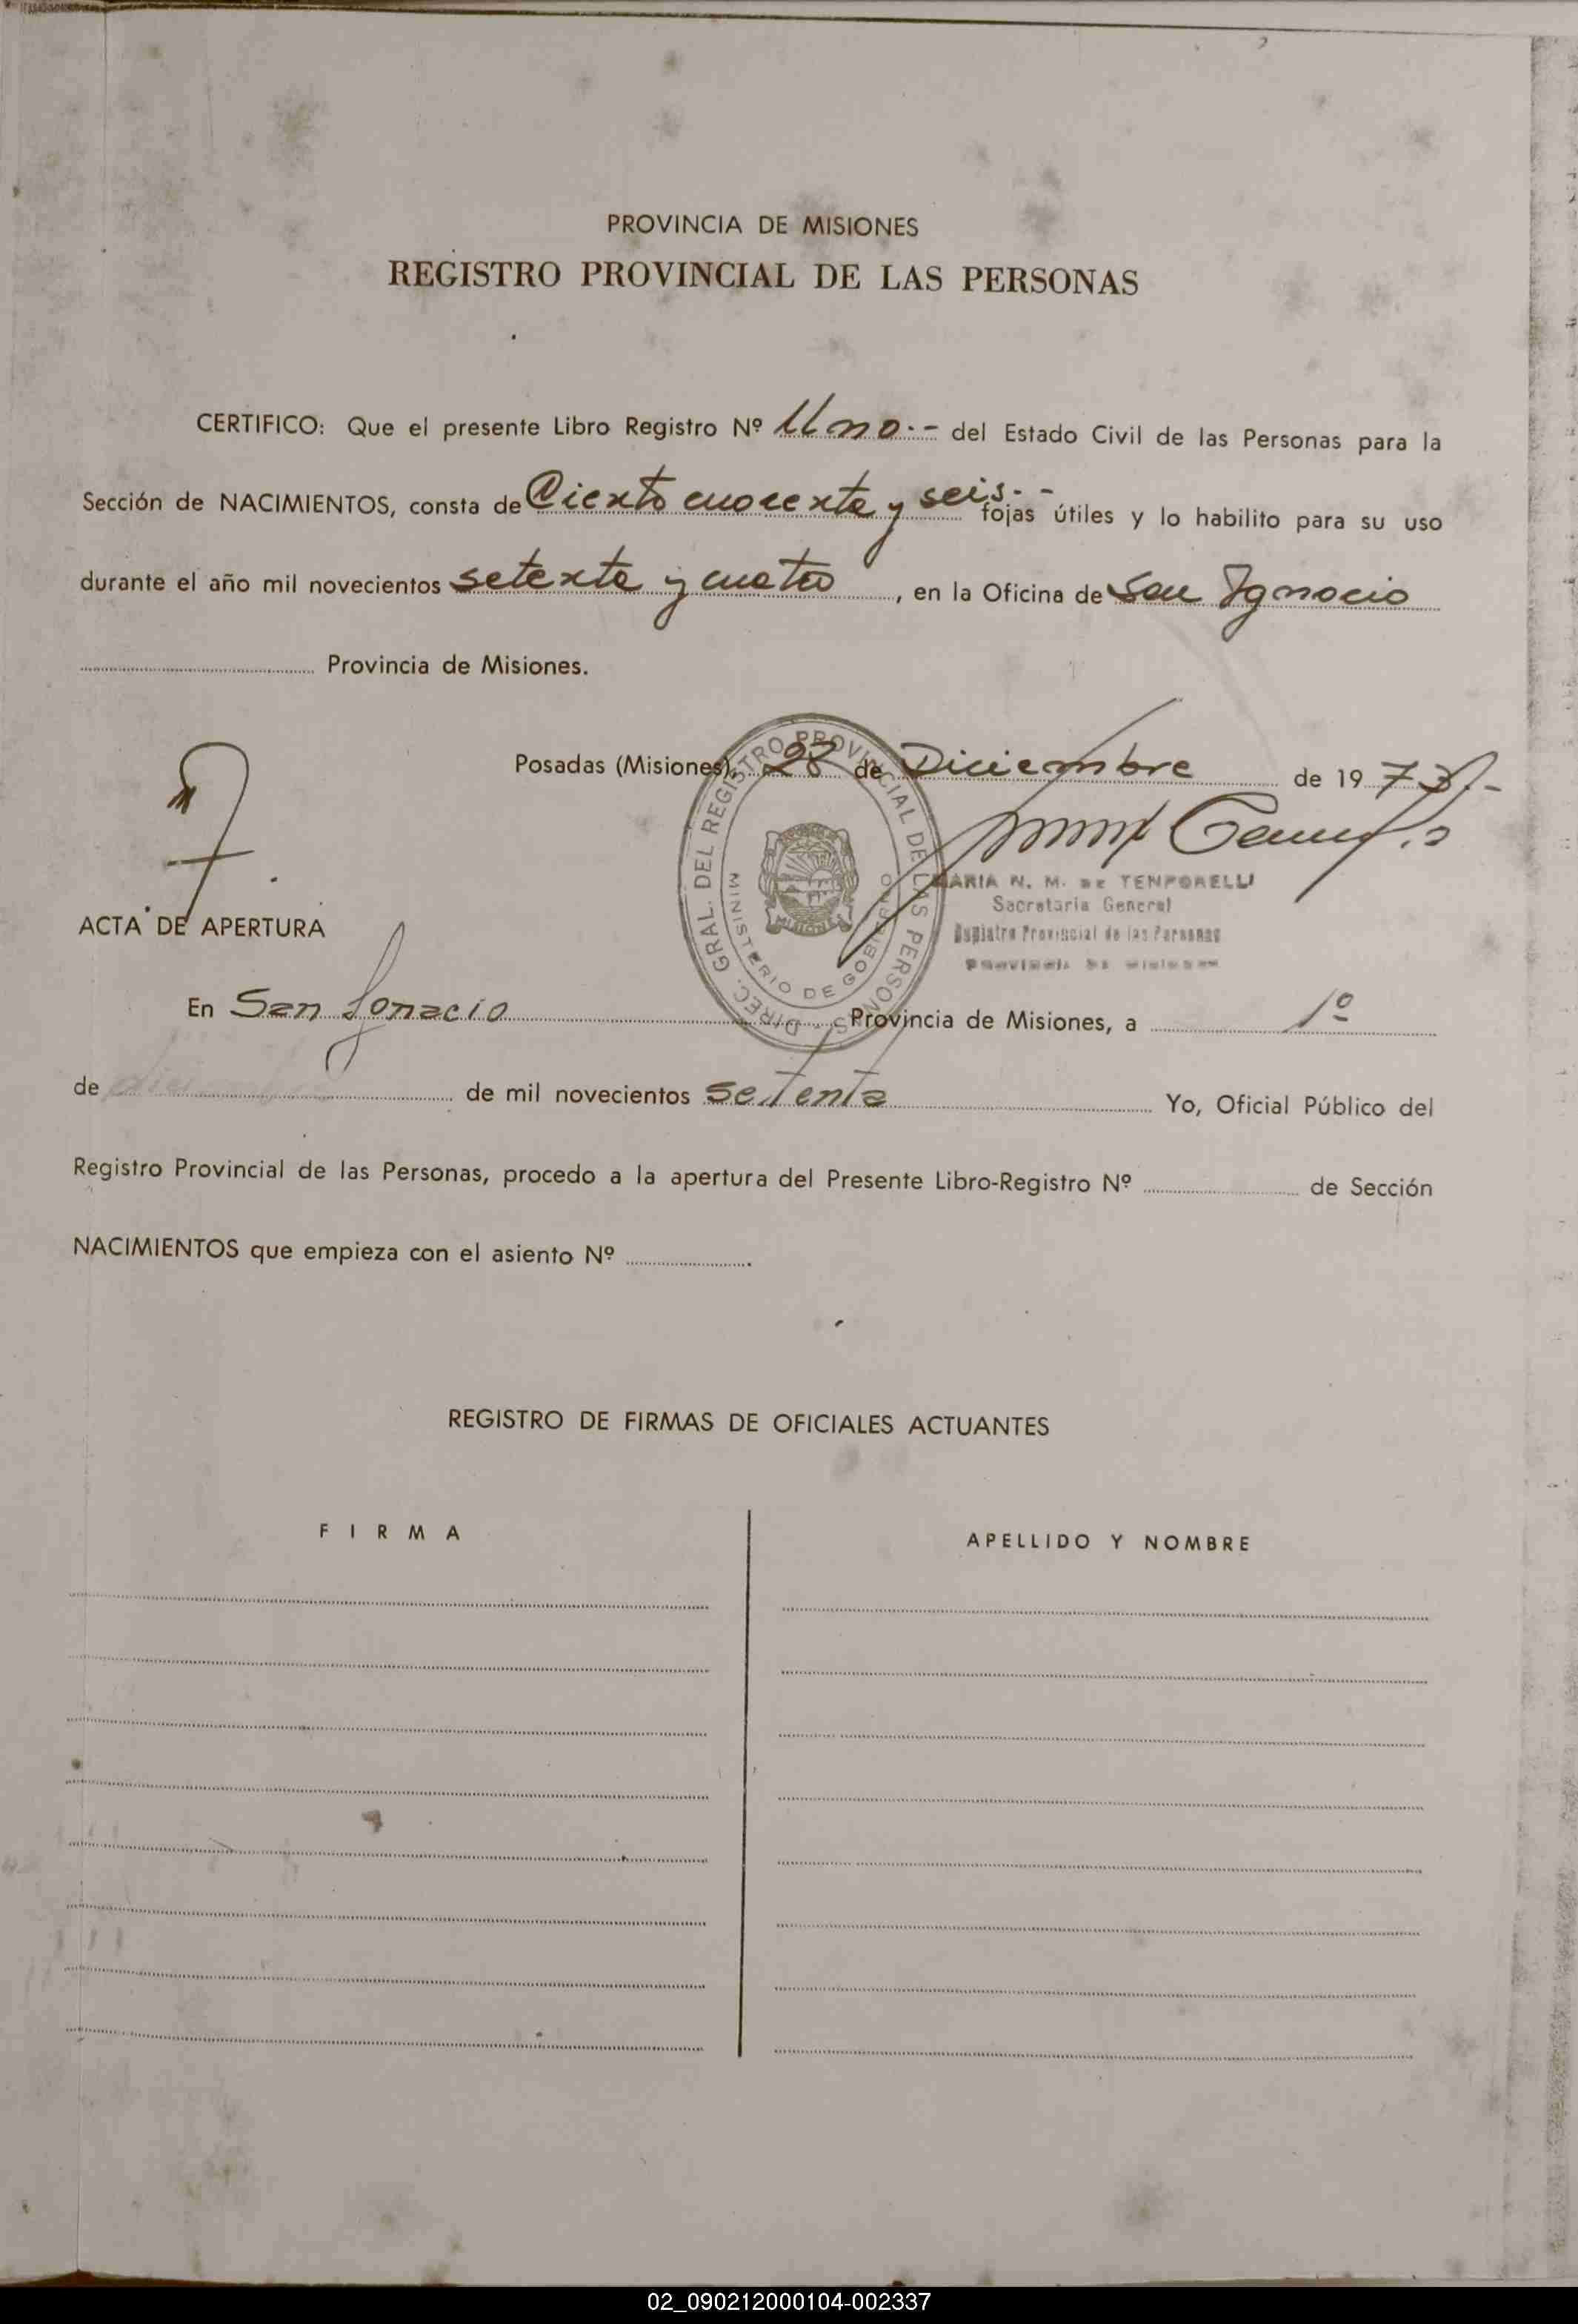 PROVINCIA DE MISIONES
REGISTRO PROVINCIAL DE LAS PERSONAS
CERTIFICO: Que el presente Libro Registro Nº Uno.- del Estado Civil de las Personas para la
Sección de NACIMIENTOS, consta de Ciento cuarenta y seis.- fojas útiles y lo habilito para su uso
durante el año mil novecientos setenta y cuatro, en la Oficina de San Ignacio
Provincia de Misiones.
Posadas (Misiones), 28 de Diciembre de 1973.-
MARIA N. M. DE TEMPORELLI
Secretaria General
Registro Provincial de las Personas
Provincia de Misiones
DIREC. GRAL. DEL REGISTRO PROVINCIAL DE LAS PERSONAS
MINISTERIO DE GOBIERNO
MISIONES
ACTA DE APERTURA
En San Ignacio Provincia de Misiones, a 1º
de de mil novecientos setenta Yo, Oficial Público del
Registro Provincial de las Personas, procedo a la apertura del Presente Libro-Registro Nº de Sección
NACIMIENTOS que empieza con el asiento Nº
REGISTRO DE FIRMAS DE OFICIALES ACTUANTES
FIRMA
APELLIDO Y NOMBRE
02_090212000104-002337